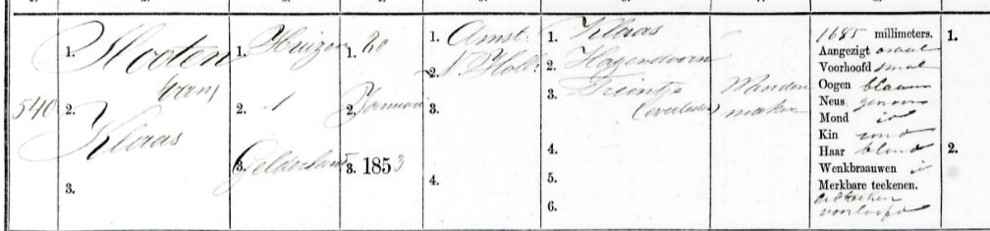 540
1. Slooten
(van)
2. Klaas
3.
1. Huizen
2. 1
3. Gelderland
1. 20
2. Januari
3. 1853
1. Amst.
2. N. Holl.
3.
4.
1. Klaas
2. Hogendoorn
3. Treintje
(overleden)
4.
5.
6.
Manden
maker
1685 millimeters.
Aangezigt ovaal
Voorhoofd smal
Oogen blauw
Neus gewoon
Mond id
Kin rond
Haar blond
Wenkbraauwen id
Merkbare teekenen.
1.
2.